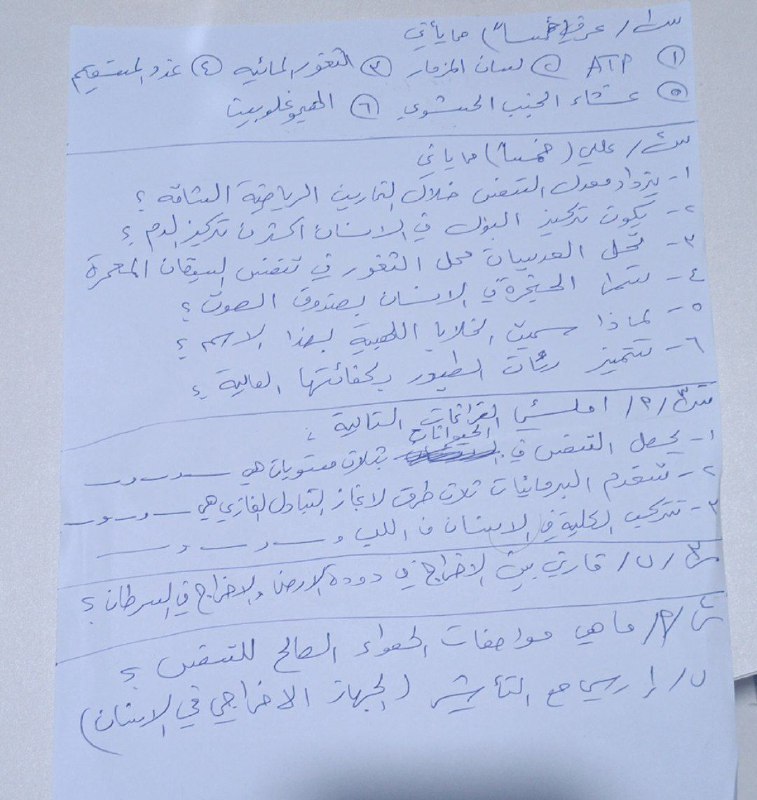 س١/ عرفي (خمساً) مما يأتي
① ATP ② لسان المزمار ③ الثغور المائيه ④ غدد المستقيم
⑤ غشاء الجنب الحشوي ⑥ الهيموغلوبين
س٢/ عللي (خمساً) مما يأتي
١- يزداد معدل التنفس خلال التمارين الرياضية الشاقه ؟
٢- يكون تركيز البول في الانسان اكثر من تركيز الدم ؟
٣- تحل العديسات محل الثغور في تنفس السيقان المعمرة
٤- تسمى الحنجرة في الانسان بصندوق الصوت ؟
٥- لماذا سميت الخلايا اللهبية بهذا الاسم ؟
٦- تتميز رئات الطيور بكفائتها العالية ؟
س٣/ P/ املئي الفراغات التالية :
١- يحصل التنفس في الحيوانات بثلاث مستويات هي ــ و ــ و ــ
٢- تستخدم البرمائيات ثلاث طرق لانجاز التبادل الغازي هي ــ و ــ و ــ
٣- تتركب الكلية في الانسان من اللب و ــ و ــ و ــ
س٣/ ب/ قارني بين الاخراج في دودة الارض والاخراج في السرطان ؟
س٤/ P/ ما هي مواصفات الهواء الصالح للتنفس ؟
ب/ ارسمي مع التأشير (الجهاز الاخراجي في الانسان)